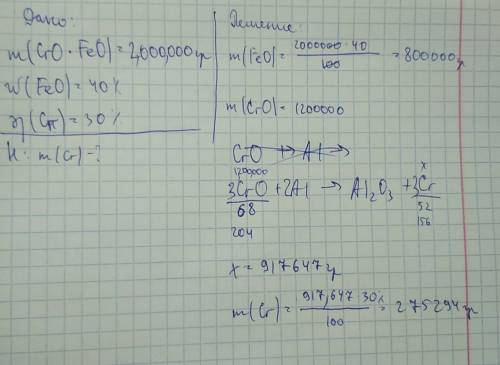 Дано:
m(CrO · FeO) = 2,000,000 гр
w(FeO) = 40%
η(Cr) = 30%
Н: m(Cr) - ?
Решение:
m(FeO) = 2000000 · 40 / 100 = 800000 гр
m(CrO) = 1200000
CrO → Al →
1200000 x
3CrO + 2Al → Al2O3 + 3Cr
68 52
204 156
x = 917647 гр
m(Cr) = 917,647 · 30% / 100 = 275294 гр